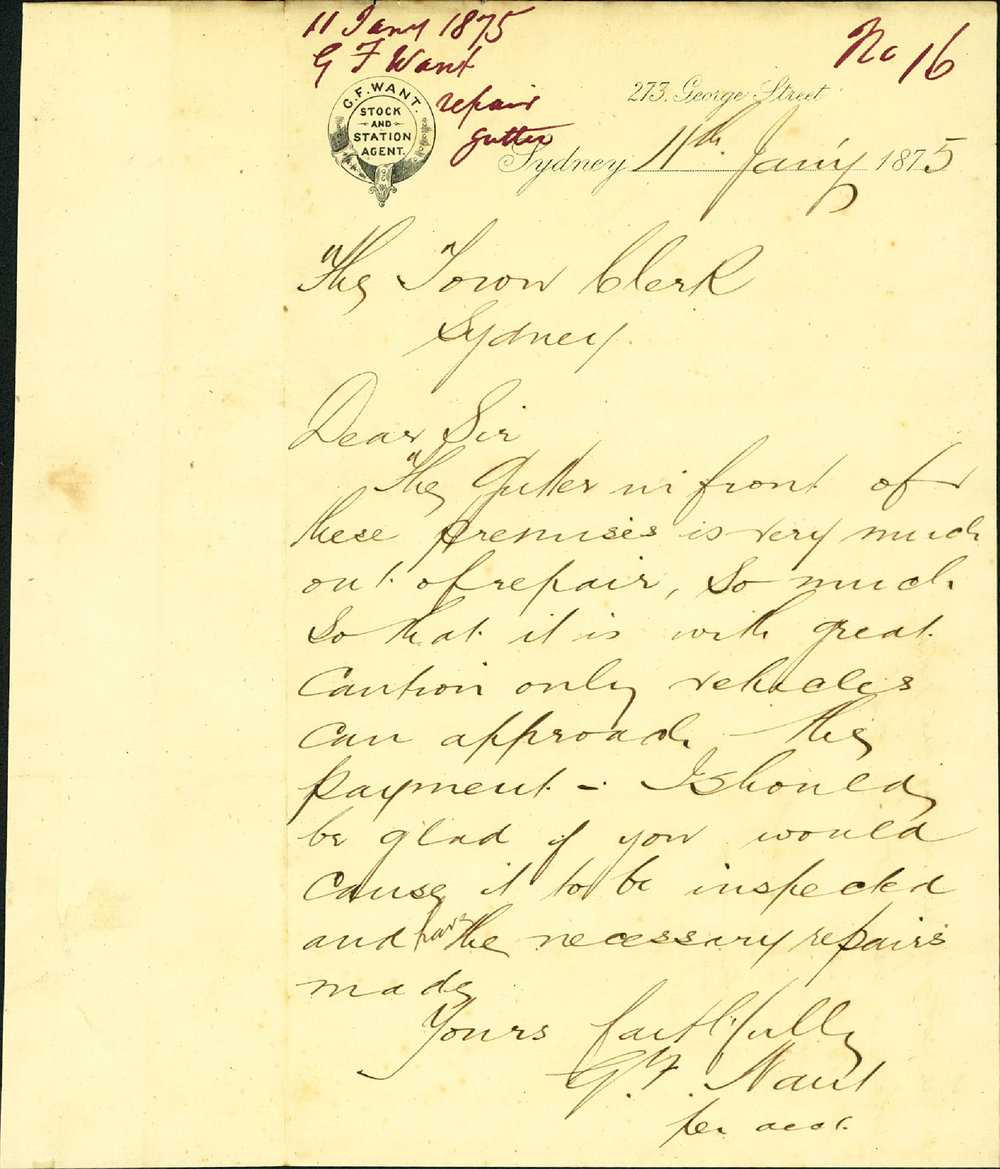 11 Jany 1875
G F Want
repair
gutter
No 16
G. F. WANT.
STOCK
AND
STATION
AGENT.
273, George Street
Sydney 11th Jan'y 1875
The Town Clerk
Sydney.
Dear Sir
The Gutter in front of
these premises is very much
out of repair, so much
so that it is with great
caution only vehicles
can approach the
payment - I should
be glad if you would
cause it to be inspected
and have the necessary repairs
made
Yours faithfully
G. F. Want
per